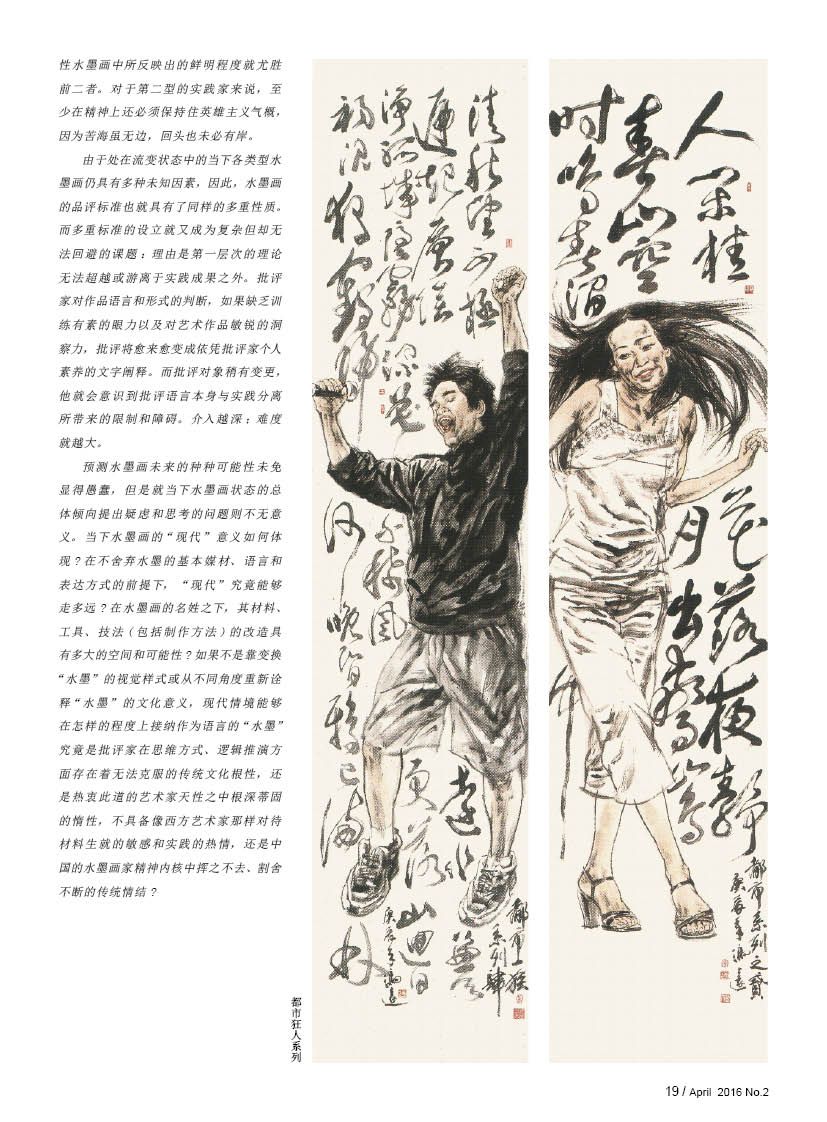 性水墨画中所反映出的鲜明程度就尤胜
前二者。对于第二型的实践家来说，至
少在精神上还必须保持住英雄主义气概，
因为苦海虽无边，回头也未必有岸。
由于处在流变状态中的当下各类型水
墨画仍具有多种未知因素，因此，水墨画
的品评标准也就具有了同样的多重性质。
而多重标准的设立就又成为复杂但却无
法回避的课题：理由是第一层次的理论
无法超越或游离于实践成果之外。批评
家对作品语言和形式的判断，如果缺乏训
练有素的眼力以及对艺术作品敏锐的洞
察力，批评将愈来愈变成依凭批评家个人
素养的文字阐释。而批评对象稍有变更，
他就会意识到批评语言本身与实践分离
所带来的限制和障碍。介入越深：难度
就越大。
预测水墨画未来的种种可能性未免
显得愚蠢，但是就当下水墨画状态的总
体倾向提出疑虑和思考的问题则不无意
义。当下水墨画的“现代”意义如何体
现？在不舍弃水墨的基本媒材、语言和
表达方式的前提下，“现代”究竟能够
走多远？在水墨画的名姓之下，其材料、
工具、技法（包括制作方法）的改造具
有多大的空间和可能性？如果不是靠变换
“水墨”的视觉样式或从不同角度重新诠
释“水墨”的文化意义，现代情境能够
在怎样的程度上接纳作为语言的“水墨”
究竟是批评家在思维方式、逻辑推演方
面存在着无法克服的传统文化根性，还
是热衷此道的艺术家天性之中根深蒂固
的惰性，不具备像西方艺术家那样对待
材料生就的敏感和实践的热情，还是中
国的水墨画家精神内核中挥之不去、割舍
不断的传统情结？
清秋望不极
迢递起层阴
远水兼天净
孤城隐雾深
叶稀风更落
山迥日初沉
独鹤归何晚
昏鸦已满林
都市系列肆
人闲桂
花落夜静
春山空
月出惊山鸟
时鸣春涧中
都市系列之贰
庚辰年冯远
都市狂人系列
19 / April 2016 No.2